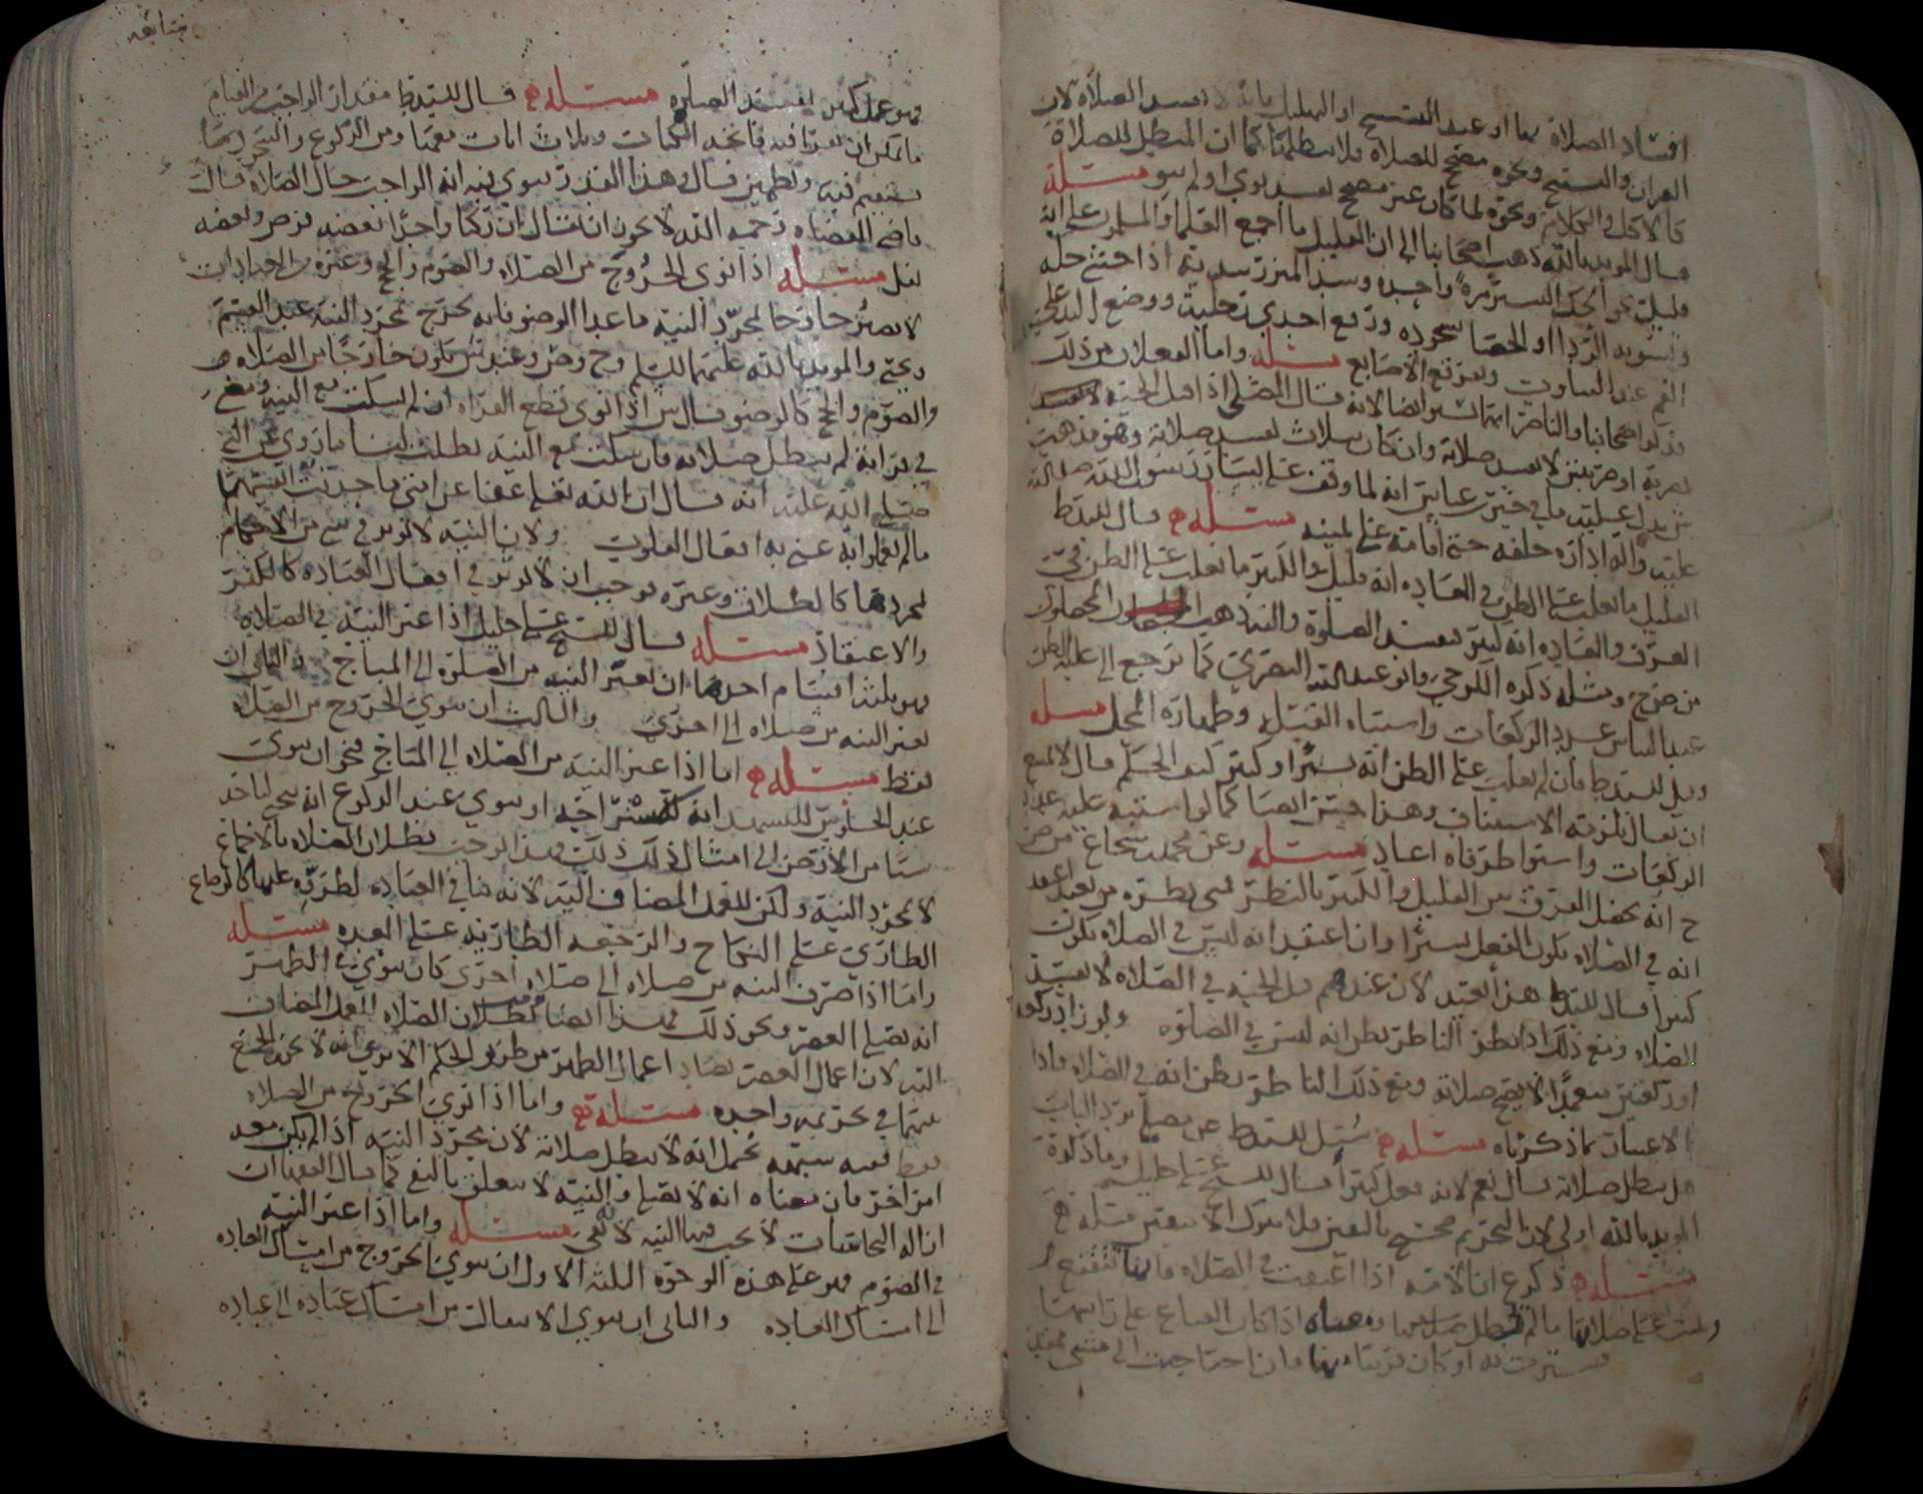 افساد الصلاة بها او عند التسبيح او التهليل فانه لا تفسد الصلاة لان
القران والتسبيح ونحوه مصحح للصلاة فلا يبطلها كما ان المبطل للصلاة
كالاكل والكلام ونحوه لما كان غير مصحح يفسد نوى او لم ينو مسئلة
قال المويد بالله ذهب اصحابنا الى ان القليل ما اجمع العلما والمسلمون على انه
قليل نحو الحك اليسير مرة واحدة وسد المئزر بيديه اذا خشي حله
وتسوية الردا او الحصا لسجوده ورفع احدى رجليه ووضع اليد على
الفم عند التثاوب وتفرقع الاصابع مسئلة واما الفعلان من ذلك
فذكر اصحابنا والناصر انهما يسير ايضا لانه قال المصلي اذا قتل الحية
بضربة او ضربتين لا تفسد صلاته وان كان بثلاث تفسد صلاته وهو مذهب
ش يدل عليه ما في خبر ابن عباس انه لما وقف على يسار رسول الله صلى الله
عليه واله اداره خلفه حتى اقامه على يمينه مسئلة قال السيد ط
القليل ما يغلب على الظن في العادة انه قليل والكثير ما يغلب على الظن في
العرف والعادة انه كثير تفسد الصلوة واليه ذهب المحصلون
من صح ومثله ذكره الكرخي وابو عبد الله البصري كما يرجع الى غلبة الظن
عند التباس عدد الركعات واشتباه القبلة وطهارة المحل مسئلة
وقيل للسيد ط فان لم يغلب على الظن انه يسير او كثير كيف الحكم قال لا يمتنع
ان يقال يلزمه الاستيناف وهذا حسن ايضا كما لو اشتبه عليه عدد
الركعات واستوا طرفاه اعاد مسئلة وعن محمد بن شجاع من صح
ح انه يحصل الفرق بين القليل والكثير بالنظر فمتى نظره من بعيد اعتقد
انه في الصلاة يكون الفعل يسيرا وان اعتقد انه ليس في الصلاة يكون
كثيرا قال السيد ط هذا بعيد لان عندهم قتل الحية في الصلاة لا يفسد
الصلاة ومع ذلك اذا نظر الناظر يظن انه ليس في الصلوة ولو زاد ركوعا
او ركعتين متعمدا لا تصح صلاته ومع ذلك الناظر يظن انه في الصلاة فاذا
الاعتبار بما ذكرناه مسئلة سئل السيد ط عن مصل يرد الباب
هل تبطل صلاته قال نعم لانه فعل كثيرا قال الشيخ علي خليل وما ذكره
المويد بالله اولى لان التحريم صحيح باليقين فلا يترك الا بيقين مثله
مسئلة ذكر ع ان الامة اذا اعتقت في الصلاة فانها تتقنع
وتبني على صلاتها ما لم تبطل صلاتها ومعناه اذا كان القناع على راسها
فسترت به او كان قريبا منها فان احتاجت الى مشي
متابعه
فهو عمل كثير تفسد الصلوة مسئلة قال السيد ط مقدار الواجب من القيام
ما يمكن ان يقرا فيه فاتحة الكتاب وثلاث ايات معها ومن الركوع والسجود ما
يستقيم فيه ويطمئن قال وهذا القدر ينوي فيه انه الواجب حال الصلاة قال
قاضي القضاة رحمه الله لا يجوز ان يقال ان ركنا واحدا بعضه فرض وبعضه
نفل مسئلة اذا نوى الخروج من الصلاة والصوم والحج وغيره من العبادات
لا يصير خارجا بمجرد النية ما عدا الوضو فانه يخرج بمجرد النية عند القسم
ويحيى والمويد بالله عليهما السلم وح وص وعند ش يكون خارجا من الصلاة
والصوم والحج كالوضو قال ش اذا نوى قطع القراه ان لم يسكت مع النية ومضى
في قرايته لم تبطل صلاته فان سكت مع النية بطلت لنا ما روي عن النبي
صلى الله عليه انه قال ان الله تعلى عفا عن امتي ما حدثت انفسها
ما لم يفعلوا به عنى به افعال القلوب ولان النية لا توثر في شي من الاحكام
بمجردها كالطلاق وغيره فوجب ان لا توثر في افعال العبادة كالكفر
والاعتقاد مسئلة قال الشيخ علي خليل اذا غير النية في الصلاة
فهو ثلثة اقسام احدها ان يغير النية من الصلوة الى المباح والثاني ان
يغير النية من صلاة الى اخرى والثالث ان ينوي الخروج من الصلاة
فقط مسئلة اما اذا غير النية من الصلاة الى المباح فنحو ان ينوي
عند الجلوس للتشهد انه للاستراحة او ينوي عند الركوع انه ينحني لياخذ
شيا من الارض الى امثال ذلك فهذا يوجب بطلان الصلاة بالاجماع
لا بمجرد النية ولكن للفعل المضاف اليه لانه ينافي العبادة لطروه عليها كالرضاع
الطاري على النكاح والرجعة الطارية على العدة مسئلة
واما اذا صرف النية من صلاة الى صلاة اخرى كان ينوي في الظهر
انه يصلي العصر ونحو ذلك فهذا ايضا يوجب بطلان الصلاة للفعل المضاف
اليه لان اعمال العصر تضاد اعمال الظهر من طريق الحكم الا ترى انه لا يجوز الجمع
بينهما في تحريمة واحدة مسئلة واما اذا نوى الخروج من الصلاة
فقط فعند يحتمل انه لا تبطل صلاته لان بمجرد النية اذا لم يكن معه
امر اخر فان معناه انه لا يصلي والنية لا تتعلق بالنفي كما قال الفقها ان
ازالة النجاسات لا يجب فيها النية لانه نفي مسئلة واما اذا غير النية
في الصوم فهو على هذه الوجوه الثلثة الاول ان ينوي الخروج من امساك العبادة
الى امساك العادة والثاني ان ينوي الانتقال من امساك عبادة الى عبادة